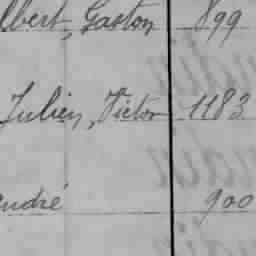 lbert, Gaston 899
Julien, Victor 1183
André 900